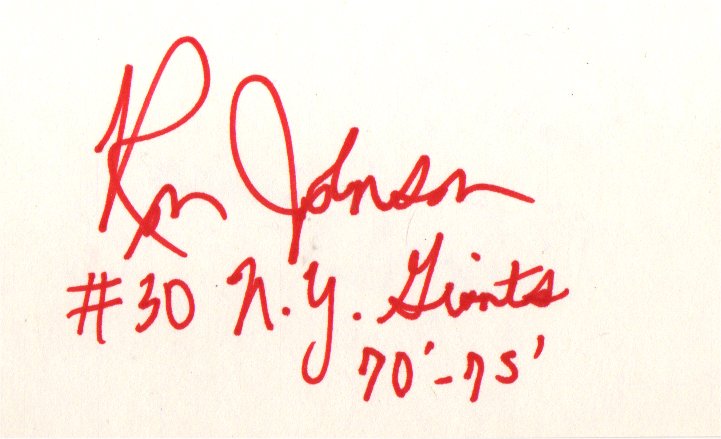 Ron Johnson
#30 N.Y. Giants
70'-75'